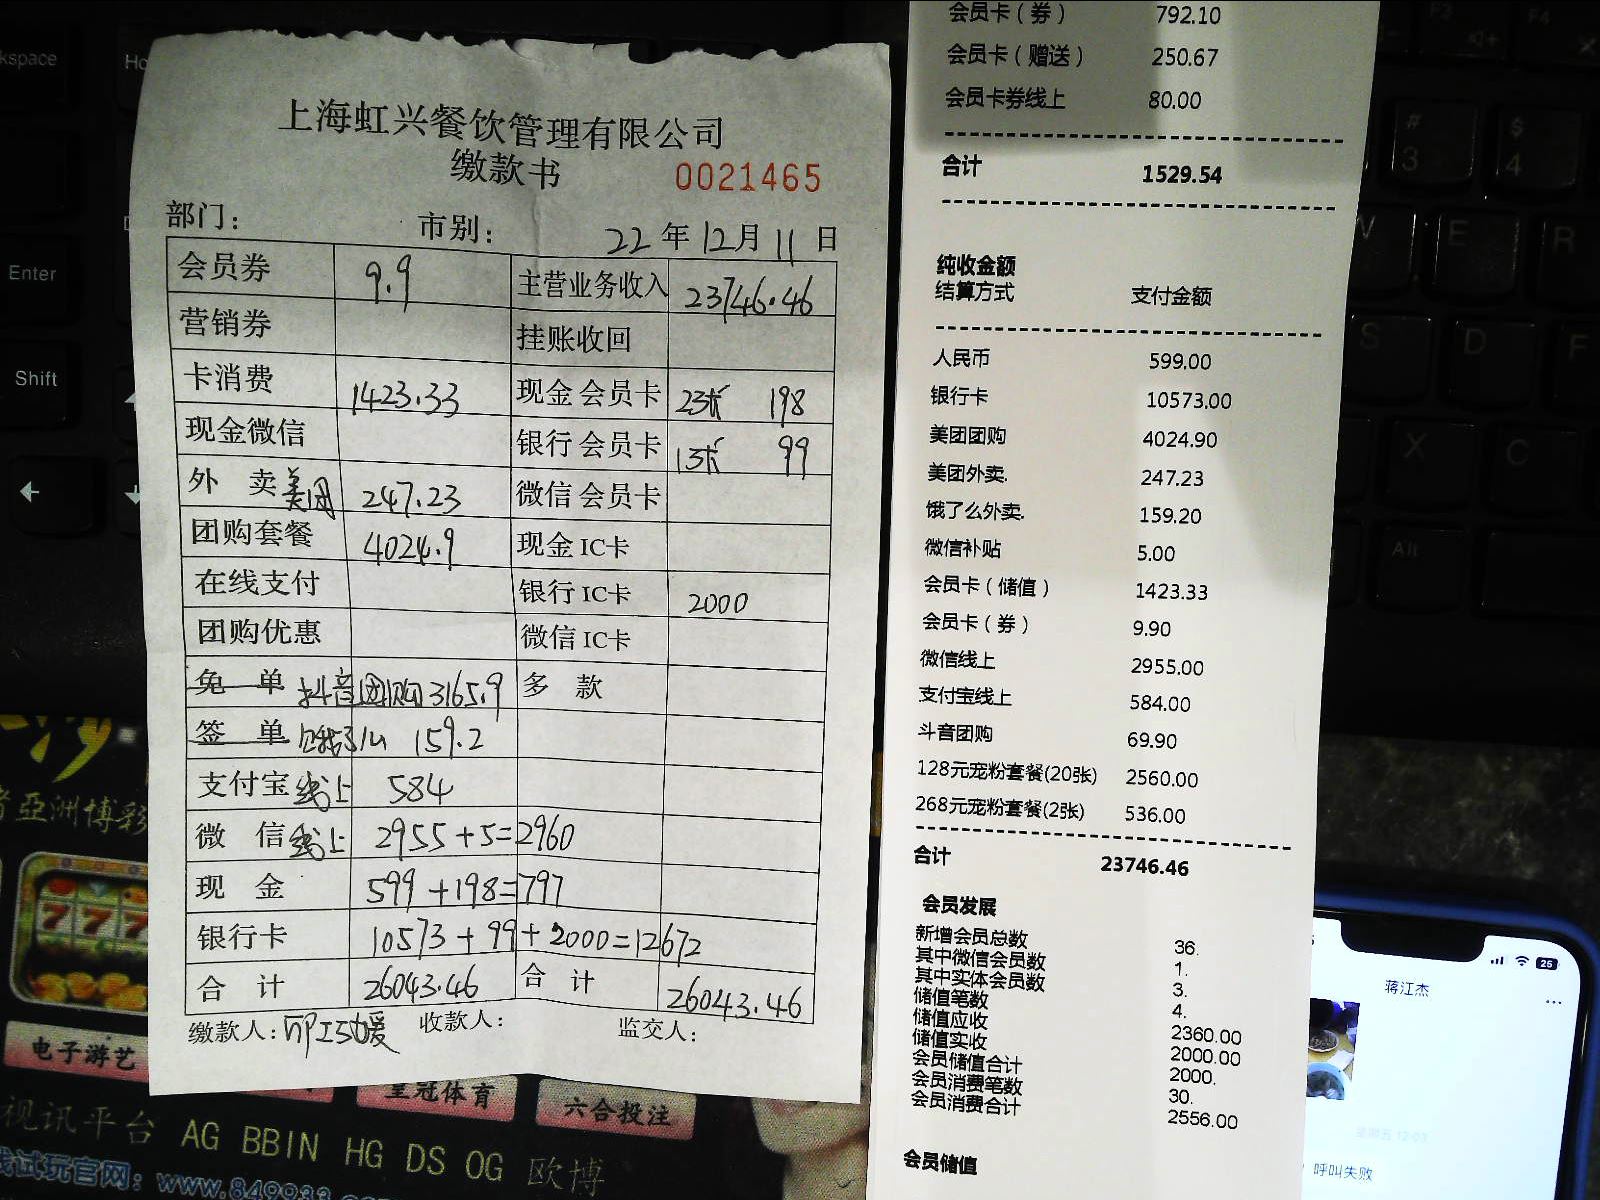 上海虹兴餐饮管理有限公司
缴款书 0021465
部门： 市别： 22 年 12 月 11 日
会员券 9.9 主营业务收入 23746.46
营销券 挂账收回
卡消费 1423.33 现金会员卡 23张 198
现金微信 银行会员卡 13张 99
外 卖 美团 247.23 微信会员卡
团购套餐 4024.9 现金IC卡
在线支付 银行IC卡 2000
团购优惠 微信IC卡
免 单 抖音团购 3165.9 多 款
签 单 饿了么 159.2
支付宝 线上 584
微 信 线上 2955+5=2960
现 金 599+198=797
银行卡 10573+99+2000=12672
合 计 26043.46 合 计 26043.46
缴款人： 收款人： 监交人：
会员卡（券） 792.10
会员卡（赠送） 250.67
会员卡券线上 80.00
合计 1529.54
纯收金额
结算方式 支付金额
人民币 599.00
银行卡 10573.00
美团团购 4024.90
美团外卖. 247.23
饿了么外卖. 159.20
微信补贴 5.00
会员卡（储值） 1423.33
会员卡（券） 9.90
微信线上 2955.00
支付宝线上 584.00
斗音团购 69.90
128元宠粉套餐(20张) 2560.00
268元宠粉套餐(2张) 536.00
合计 23746.46
会员发展
新增会员总数 36.
其中微信会员数 1.
其中实体会员数 3.
储值笔数 4.
储值应收 2360.00
储值实收 2000.00
会员储值合计 2000.
会员消费笔数 30.
会员消费合计 2556.00
会员储值
Enter
Shift
#
3
$
4
W
E
R
S
D
F
X
C
Alt
F3
F4
亞洲博彩
电子游艺
皇冠体育
六合投注
视讯平台 AG BBIN HG DS OG 欧博
试玩官网：www.849933
25
蒋江杰
星期五 12:03
呼叫失败